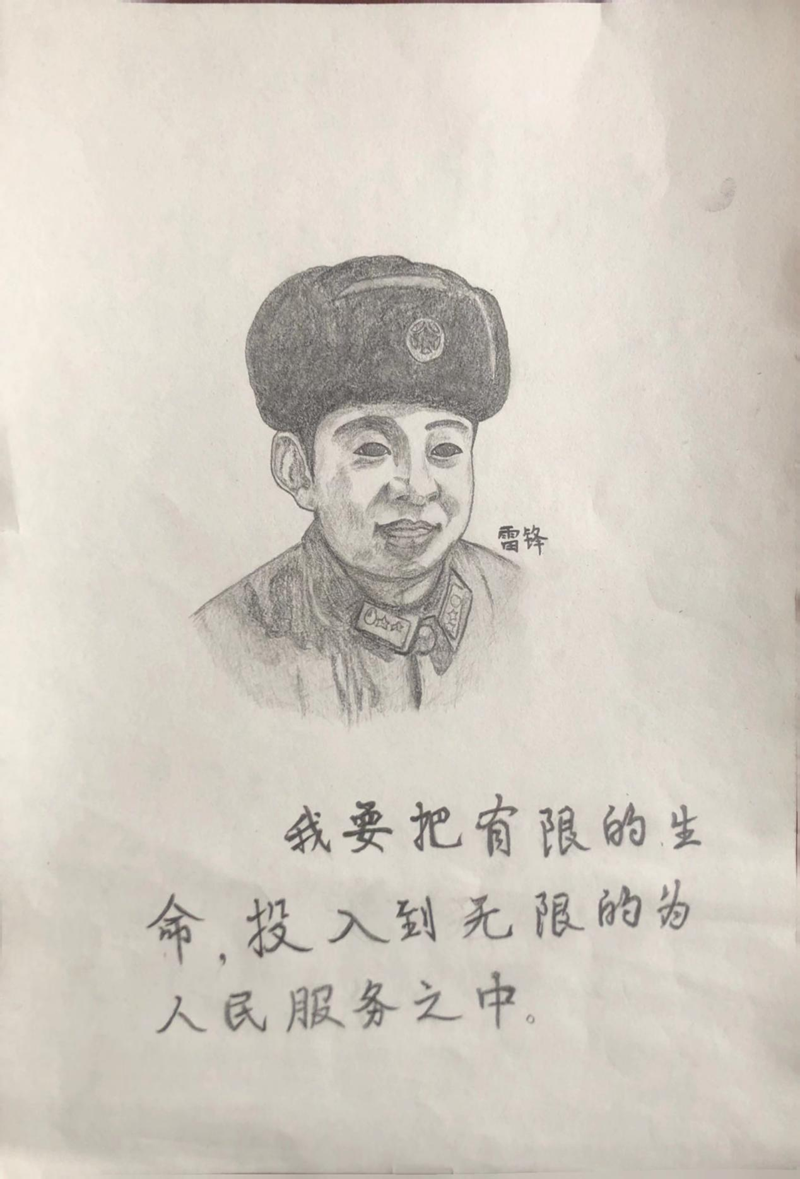 雷锋
我要把有限的生
命，投入到无限的为
人民服务之中。